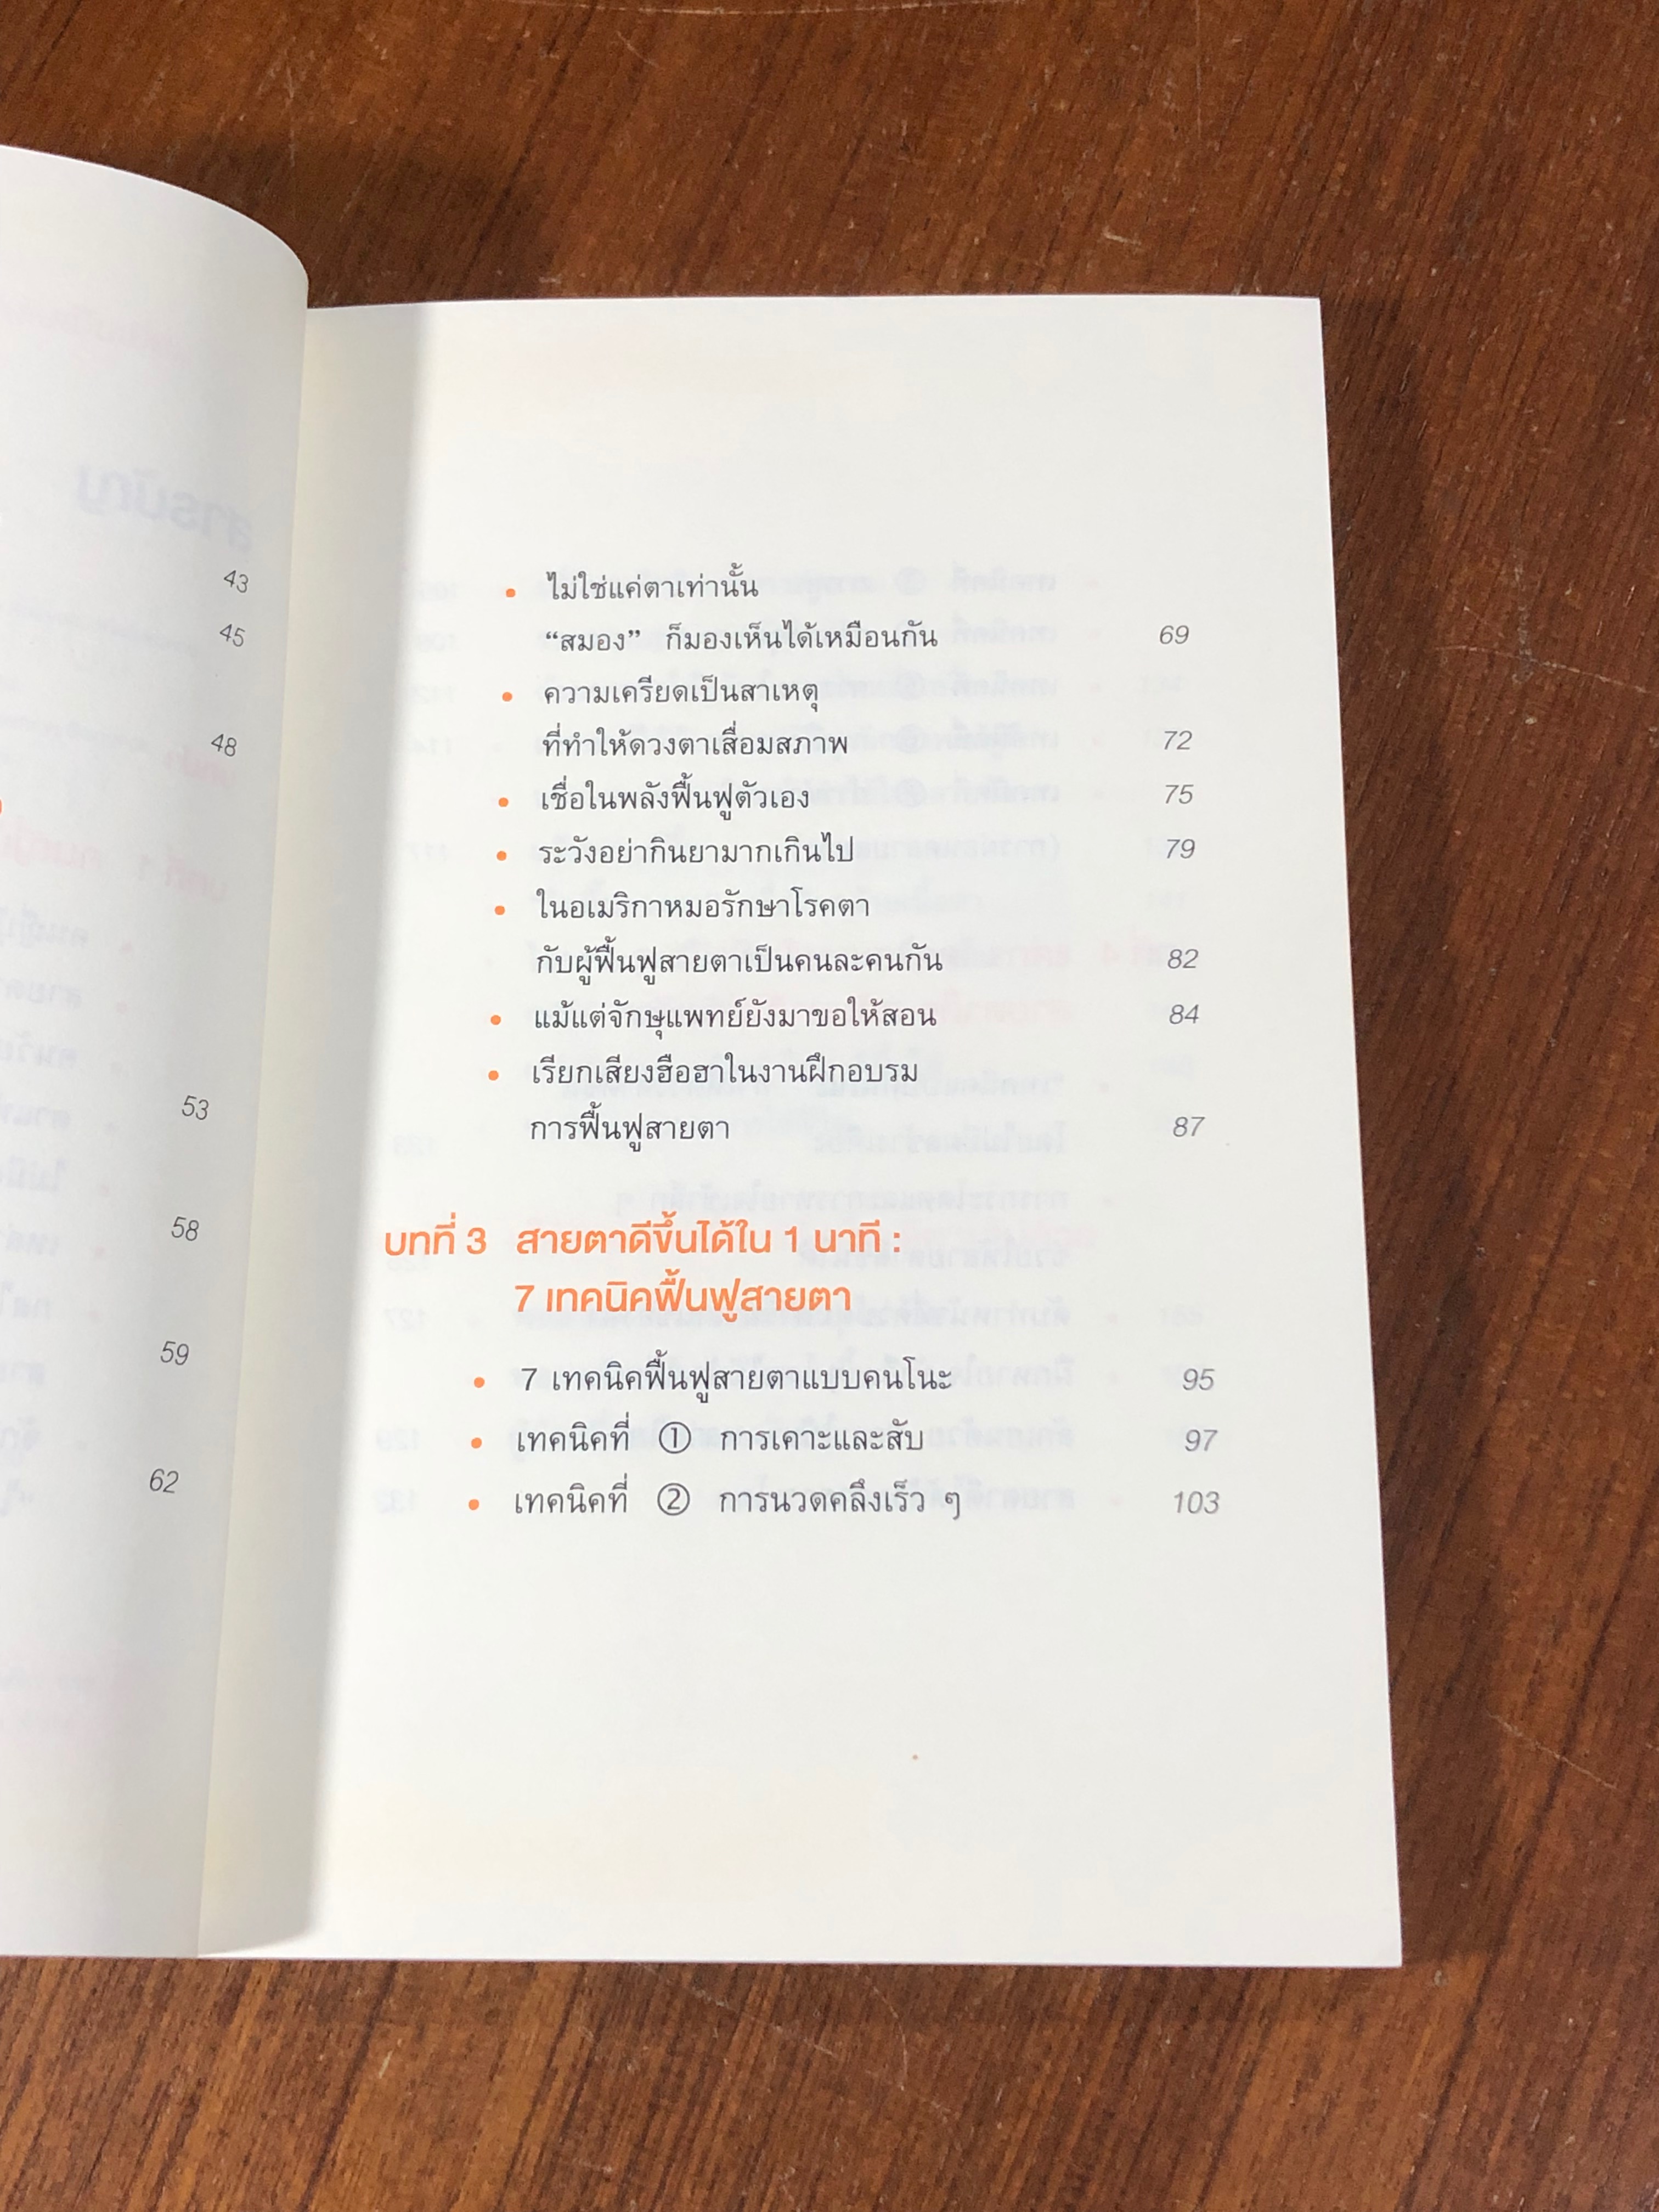 43
45
48
53
58
59
62
• ไม่ใช่แค่ตาเท่านั้น
“สมอง” ก็มองเห็นได้เหมือนกัน 69
• ความเครียดเป็นสาเหตุ
ที่ทำให้ดวงตาเสื่อมสภาพ 72
• เชื่อในพลังฟื้นฟูตัวเอง 75
• ระวังอย่ากินยามากเกินไป 79
• ในอเมริกาหมอรักษาโรคตา
กับผู้ฟื้นฟูสายตาเป็นคนละคนกัน 82
• แม้แต่จักษุแพทย์ยังมาขอให้สอน 84
• เรียกเสียงฮือฮาในงานฝึกอบรม
การฟื้นฟูสายตา 87
บทที่ 3 สายตาดีขึ้นได้ใน 1 นาที :
7 เทคนิคฟื้นฟูสายตา
• 7 เทคนิคฟื้นฟูสายตาแบบคนโนะ 95
• เทคนิคที่ ① การเคาะและสับ 97
• เทคนิคที่ ② การนวดคลึงเร็ว ๆ 103